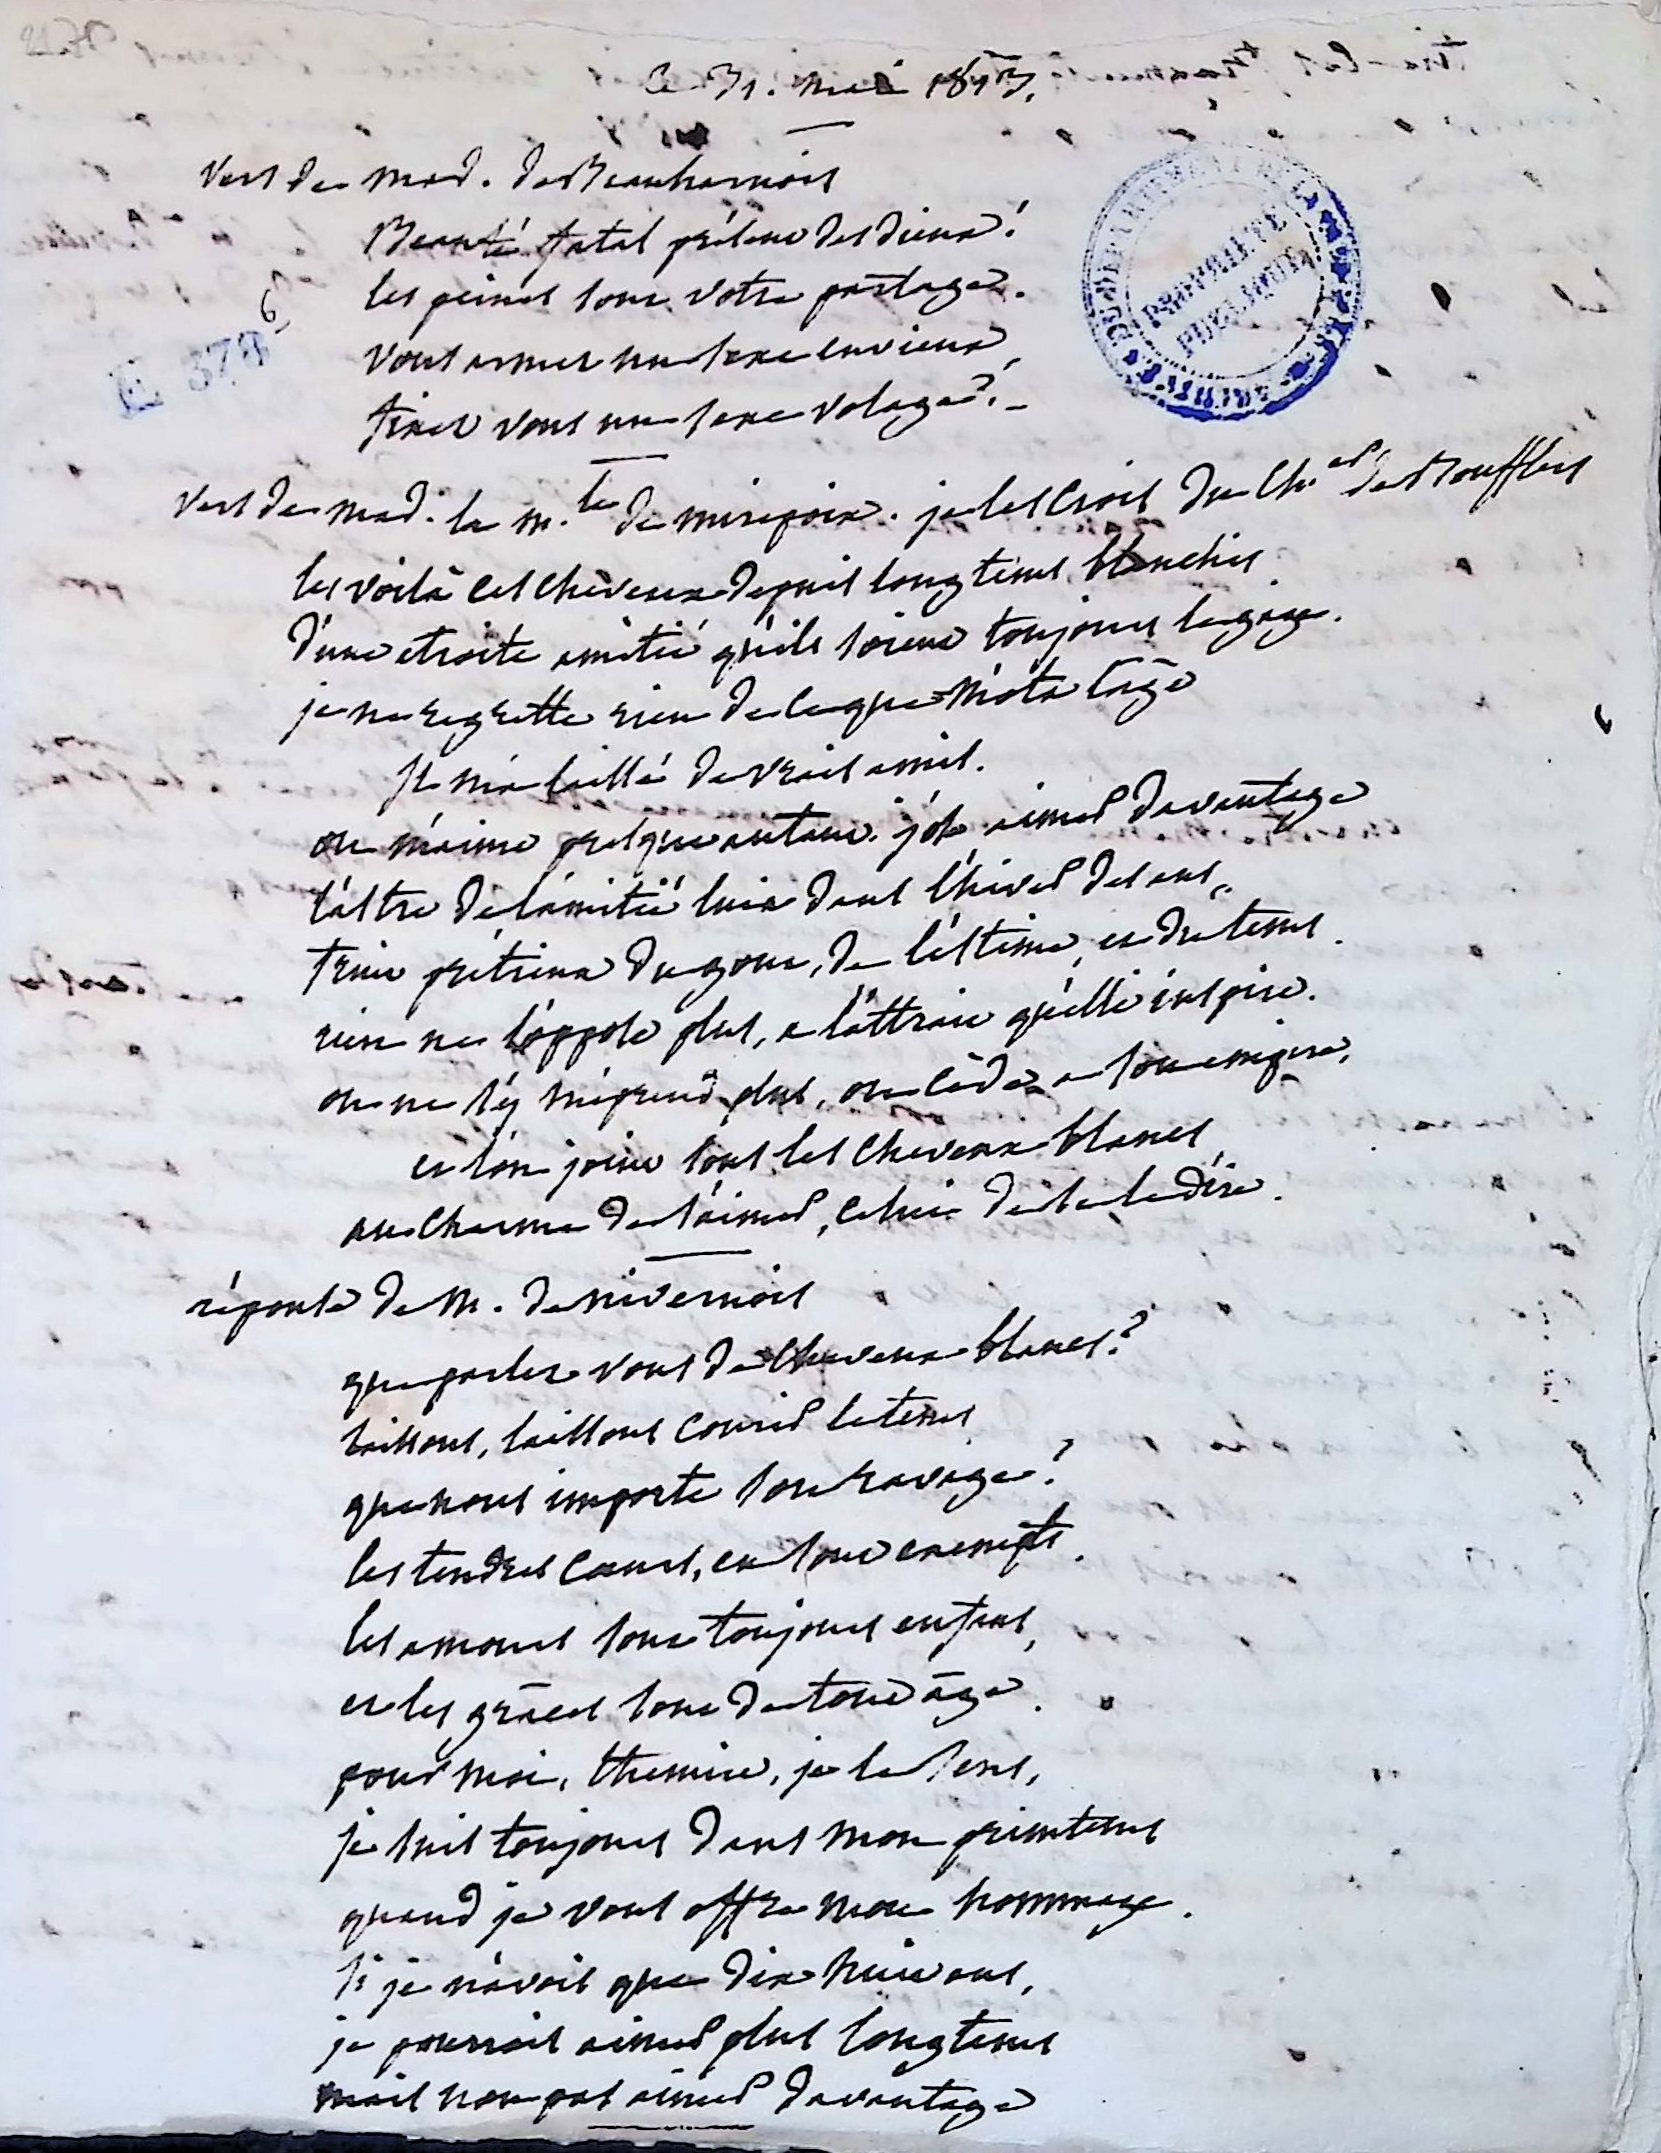 Ce 31. mai 1813.
Vers de mad. de Beauharnois
Beauté fatal présent des dieux!
les peines sont votre partage.
vous armez un sexe envieux,
fixez vous un sexe volage?
6
E 378
DÉPARTEMENT
PROPRIÉTÉ
PUBLIQUE
Vers de mad. la m.le de mirepoix. je les crois du ch.er de Boufflers
les voilà ces cheveux depuis longtems blanchis
d'une etroite amitié qu'ils soient toujours le gage.
je ne regrette rien de ce que m'ota l'age
Il m'a laissé de vrais amis.
on m'aime presque autant. j'ose aimer davantage
l'astre de l'amitié luit dans l'hiver des ans,
fruit prétieux du gout, de l'estime, et du tems.
rien ne s'oppose plus, a l'attrait qu'elle inspire.
on ne s'y méprend plus, on cède a son empire,
et l'on joint sous les cheveux blancs,
au charme de s'aimer, celui de se le dire.
réponse de M. de nivernois
que parlez vous de cheveux blancs?
laissons, laissons courir le tems
que nous importe son ravage?
les tendres cœurs, en sont exempts.
les amours sont toujours enfans,
et les grâces sont de tout âge.
pour moi, themire, je le sens,
je suis toujours dans mon printems
quand je vous offre mon hommage.
si je n'avois que dix huit ans,
je pourrois aimer plus longtems
mais non pas aimer davantage